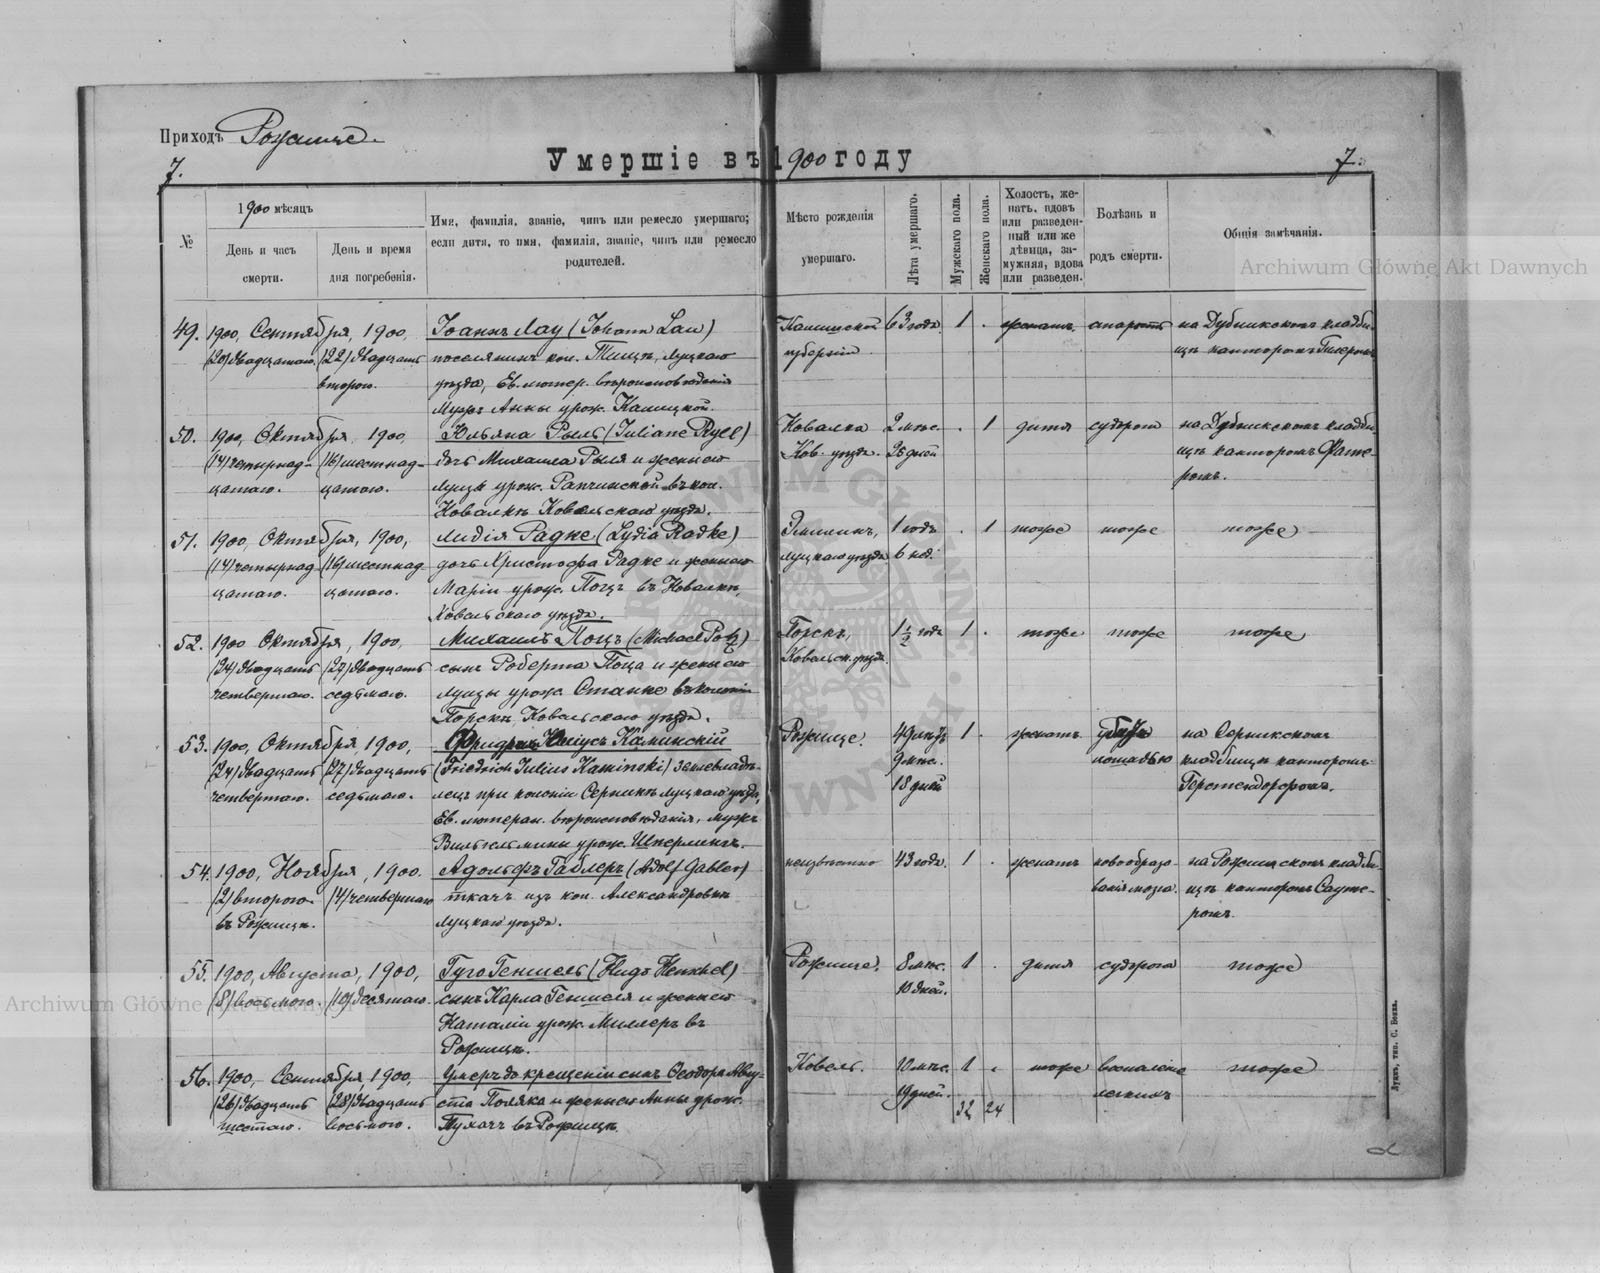 Приходъ Рожище.
7.
Умершіе въ 1900 году
7.
№
1900 мѣсяцъ
День и часъ
смерти.
День и время
дня погребенія.
Имя, фамилія, званіе, чинъ или ремесло умершаго;
если дитя, то имя, фамилія, званіе, чинъ или ремесло
родителей.
Мѣсто рожденія
умершаго.
Лѣта умершаго.
Мужскаго пола.
Женскаго пола.
Холостъ, же-
натъ, вдовъ
или разведен-
ный или же
дѣвица, за-
мужняя, вдова
или разведен.
Болѣзнь и
родъ смерти.
Общія замѣчанія.
49. 1900, Сентября, 1900, Іоаннъ Лау (Johann Lau) Калишской 63 года 1 . женатъ старость на Дубникскомъ кладби-
(20) двадцатаго (22) двадцать поселянинъ кол. Луцкаго губерніи щѣ канторомъ
второго. уѣзда, Ев. лютер. вѣроисповѣданія
Мужъ Анны урож.
50. 1900, Октября, 1900, Юльяна Рыль (Juliane Ryll) Ковалка 2 мѣс. . 1 дитя судорога на Дубникскомъ кладби-
(14) четырнад- (16) шестнад- дочь Михаила Рыля и жены его Ков. уѣзда. 28 дней щѣ канторомъ Фате-
цатаго. цатаго. Луизы урож. въ кол. ромъ.
Ковалкѣ Ковельскаго уѣзда.
51. 1900, Октября, 1900, Лидія Радке (Lydia Radke) 1 годъ . 1 тоже тоже тоже
(14) четырнад (16) шестнад дочь Христофа Радке и жены его Луцкаго уѣзда 6 нед.
цатаго. цатаго. Маріи урож. Поцъ въ Ковалкѣ,
Ковельскаго уѣзда.
52. 1900 Октября, 1900, Михаилъ Поцъ (Michael Potz) Торскъ, 1 1/2 года 1 . тоже тоже тоже
(24) двадцать (27) двадцать сынъ Роберта Поца и жены его Ковельск. уѣзда.
четвертаго. седьмаго. Луизы урож. Станке въ колоніи
Торскъ, Ковельскаго уѣзда.
53. 1900, Октября, 1900, Фридрихъ Юліусъ Каминскій Рожище. 49 лѣтъ 1 . женатъ убитъ на Серникскомъ
(24) двадцать (27) двадцать (Friedrich Julius Kaminski) землевладѣ- 9 мѣс. лошадью кладбищѣ канторомъ
четвертаго. седьмаго. лецъ при колоніи Серникѣ Луцкаго уѣзда, 18 дней Герстендорфомъ.
Ев. лютеран. вѣроисповѣданія, мужъ
Вильгельмины урож.
54. 1900, Ноября, 1900. Адольфъ Габлеръ (Adolf Gabler) неизвѣстно 43 года 1 . женатъ новообразо на Рожищскомъ кладби-
(2) второго (4) четвертаго ткачъ изъ кол. Александровки ванія мозга. щѣ канторомъ Сауте-
въ Рожищѣ. Луцкаго уѣзда. ромъ.
55. 1900, Августа, 1900, Гуго Геншель (Hugo Henschel) Рожище. 8 мѣс. 1 . дитя судорога тоже
(8) восьмого. (10) десятаго. сынъ Карла Геншеля и жены его 10 дней.
Наталіи урож. Миллеръ въ
Рожищѣ.
56. 1900, Сентября 1900, Умеръ до крещенія сынъ Ѳеодора Авгу- Ковель. 10 мѣс. 1 . тоже воспаленіе тоже
(26) двадцать (28) двадцать ста Поляка и жены его Анны урож. 19 дней. легкихъ
шестаго. восьмого. въ Рожищѣ.
32 24
Луцкъ, тип. С. Бокка.
Archiwum Główne Akt Dawnych
Archiwum Główne Akt Dawnych
ARCHIWUM GŁÓWNE AKT DAWNYCH